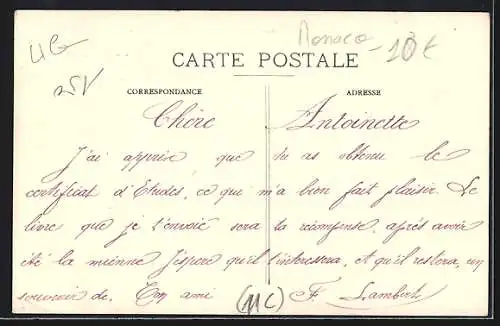 Monaco
10€
CARTE POSTALE
CORRESPONDANCE
ADRESSE
Chère Antoinette
J'ai appris que tu as obtenu le
certificat d'Etudes, ce qui m'a bien fait plaisir. Le
livre que je t'envoie sera ta récompense, après avoir
été la mienne J'espère qu'il t'intéressera, et qu'il restera, un
souvenir de. Ton ami F. Lambert
(MC)